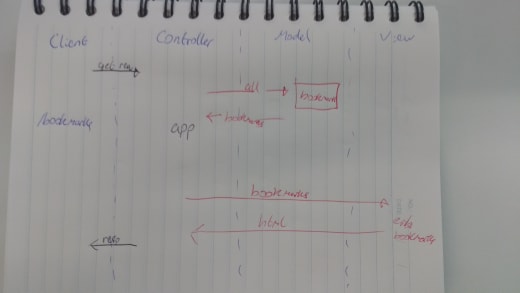 Client Controller Model View
get req
all
bookmark
/bookmarks
app
bookmarks
bookmarks
html
erb
bookmarks
resp